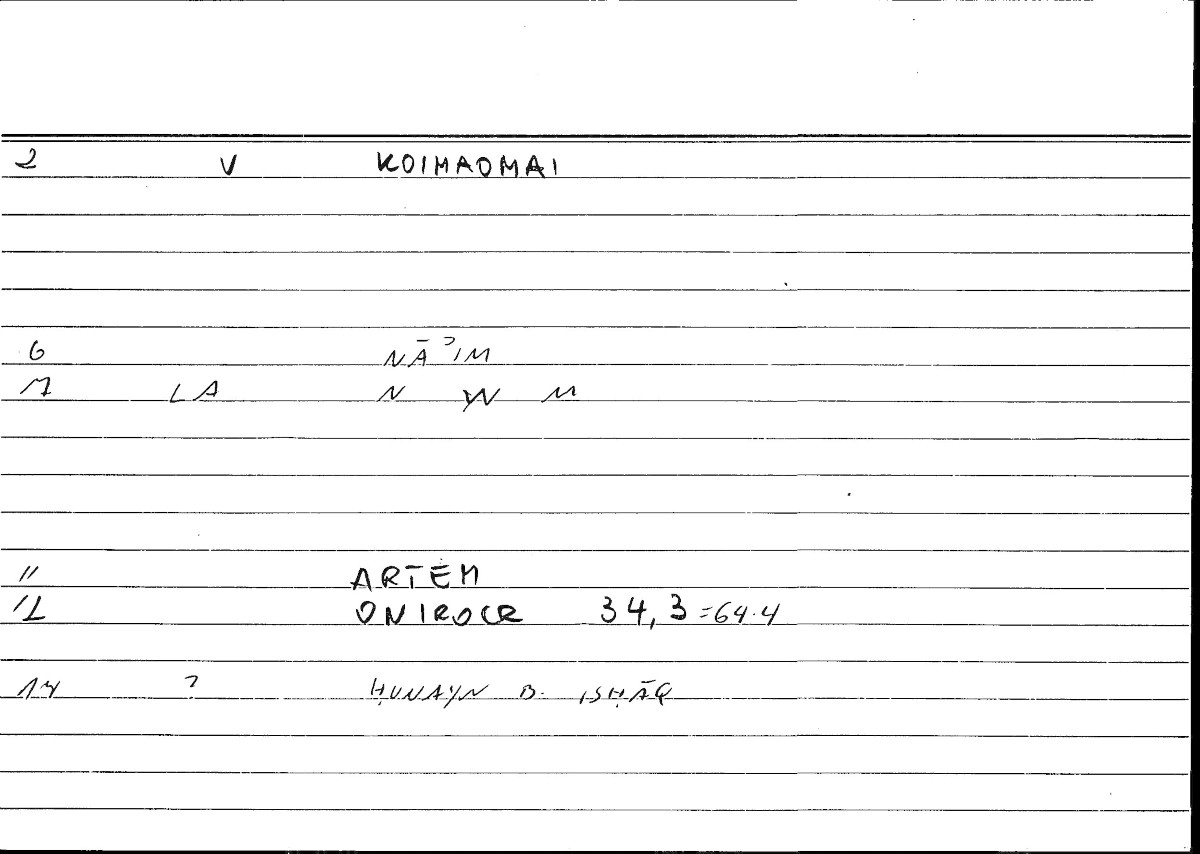 2 V KOIMAOMAI
6 NĀʾIM
7 LA N W M
11 ARTEM
12 ONIROCR 34, 3 = 64.4
14 ? ḤUNAYN B. ISḤĀQ